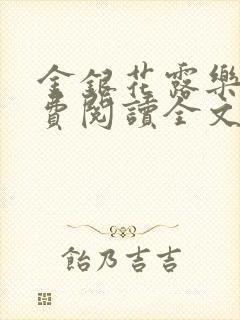 金銀花露樂
費閱讀全文
飴乃吉吉